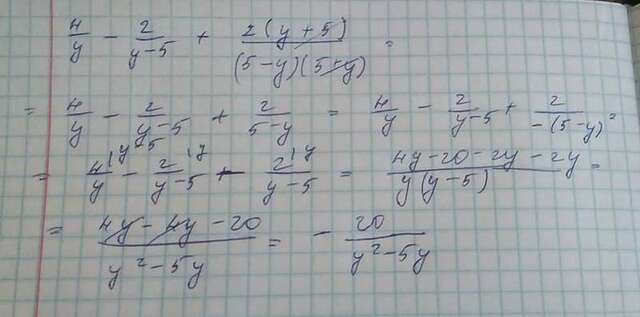 4/y - 2/(y-5) + 2(y+5)/((5-y)(5+y)) =
= 4/y - 2/(y-5) + 2/(5-y) = 4/y - 2/(y-5) + 2/(-(5-y)) =
= 4|y-5/y - 2|y/(y-5) - 2|y/(y-5) = (4y-20-2y-2y)/(y(y-5)) =
= (4y-4y-20)/(y²-5y) = - 20/(y²-5y)